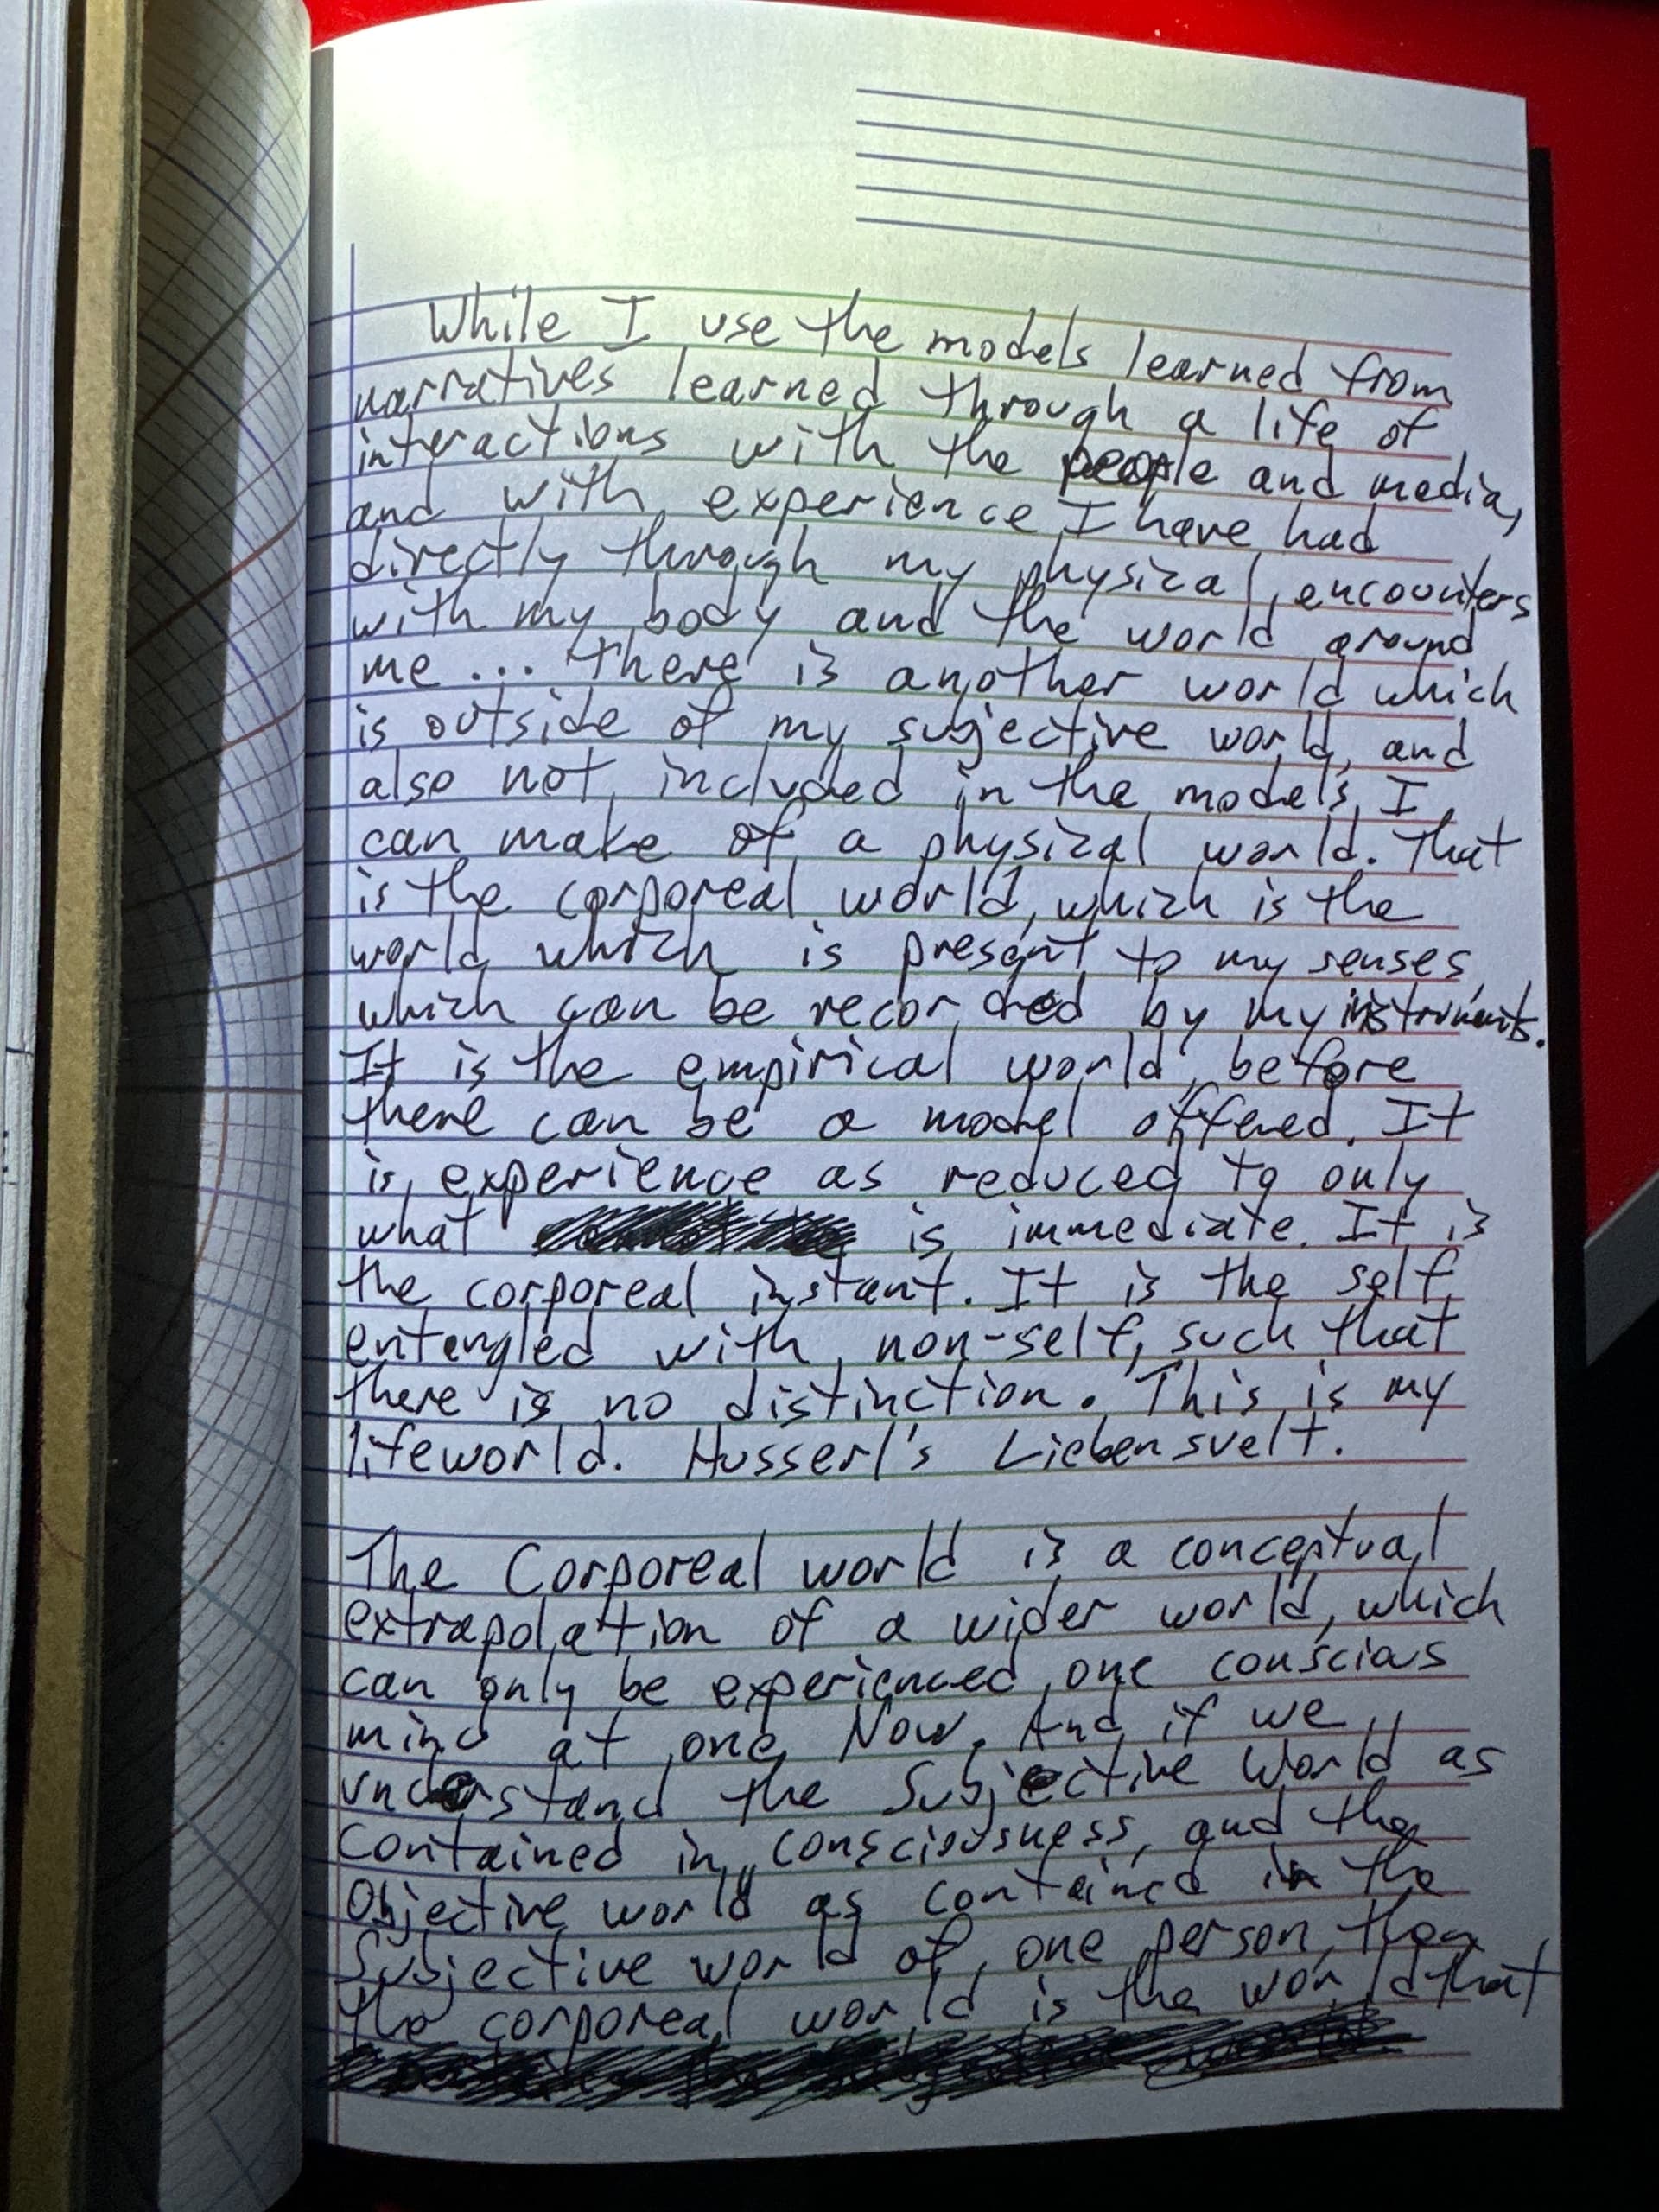 While I use the models learned from
narratives learned through a life of
interactions with the people and media,
and with experience I have had
directly through my physical encounters
with my body and the world around
me... there is another world which
is outside of my subjective world, and
also not included in the models I
can make of a physical world. That
is the corporeal world, which is the
world which is present to my senses,
which can be recorded by my instruments.
It is the empirical world before
there can be a model offered. It
is experience as reduced to only
what is immediate. It is
the corporeal instant. It is the self
entangled with non-self, such that
there is no distinction. This is my
lifeworld. Husserl's Liebensvelt.
The Corporeal world is a conceptual
extrapolation of a wider world, which
can only be experienced one conscious
mind at one Now. And if we
understand the Subjective World as
contained in consciousness, and the
Objective world as contained in the
Subjective world of one person, then
the corporeal world is the world that